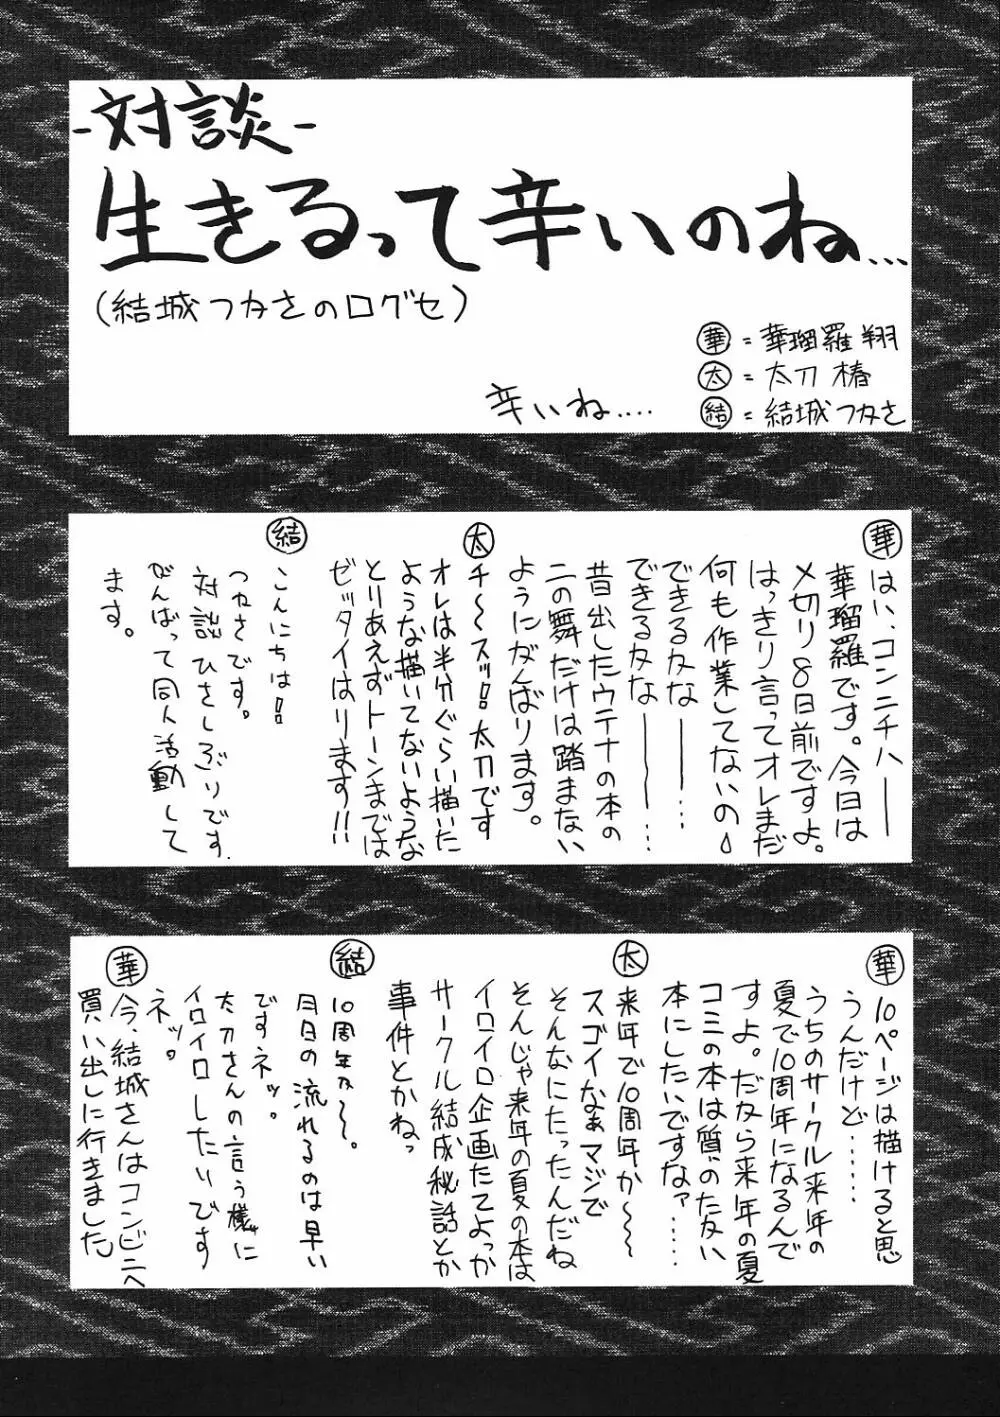 -対談-
生きるって辛いのね…
(結城つかさのログセ)
辛いね‥‥
華=華瑠羅翔
太=太刀椿
結=結城つかさ
華
はい、コンニチハ――
華瑠羅です。今日は
〆切り8日前ですよ。
はっきり言ってオレまだ
何も作業してないの
できるかな――…
できるかな――…
昔出したウテナの本の
二の舞だけは踏まない
ようにがんばります。
太
チ〜〜スッ!!太刀です
オレは半分ぐらい描いた
ような描いてないような
とりあえずトーンまでは
ゼッタイはります!!
結
こんにちは!!
つかさです。
対談ひさしぶりです。
がんばって同人活動して
ます。
華
10ページは描けると思
うんだけど‥‥‥
うちのサークル来年の
夏で10周年になるんで
すよ。だから来年の夏
コミの本は質のたかい
本にしたいですなァ……
太
来年で10周年か〜〜〜
スゴイなぁマジで
そんなにたったんだね
そんじゃ来年の夏の本は
イロイロ企画たてよっか
サークル結成秘話とか
事件とかねっ
結
10周年か〜〜。
月日の流れるのは早い
ですネッ。
太刀さんの言う様に
イロイロしたいです
ネッ。
華
今、結城さんはコンビニへ
買い出しに行きました。